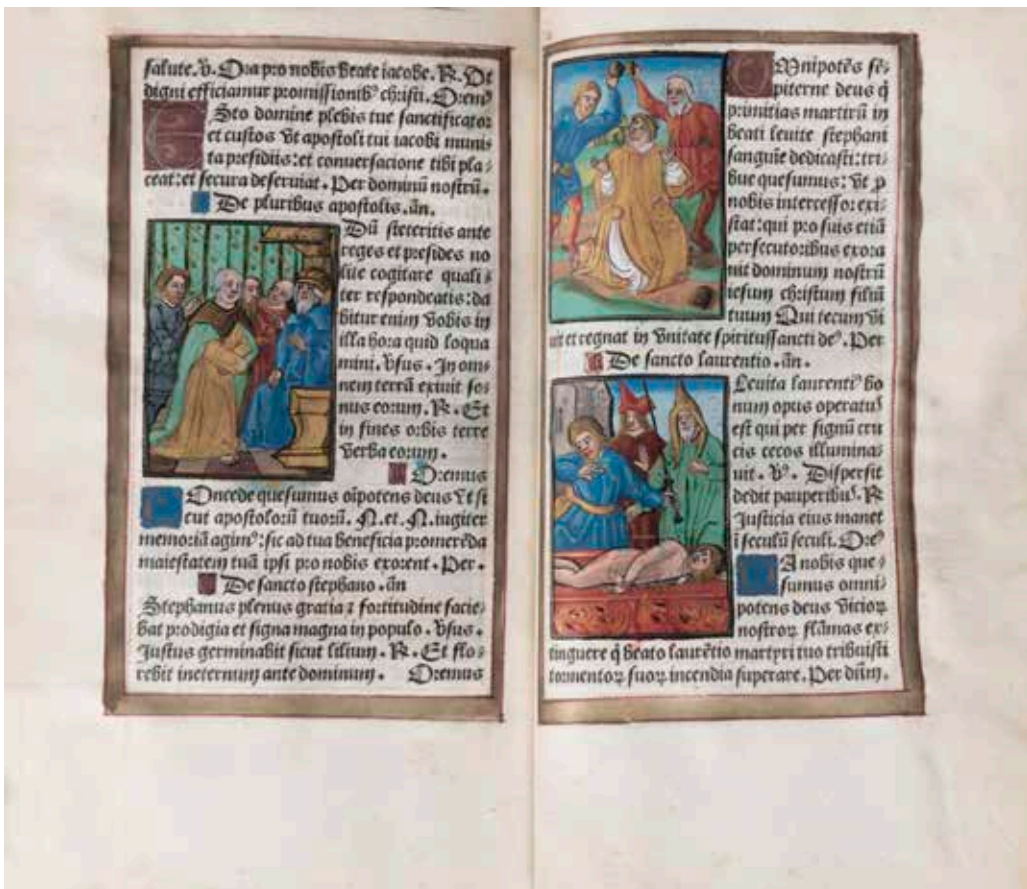 salute. ꝟ. Ora pro nobis beate iacobe. ℟. Ut
digni efficiamur promissionibꝰ christi. Oremꝰ
ESto domine plebis tue sanctificator
et custos vt apostoli tui iacobi muni⸗
ta presidiis: et conuersacione tibi pla⸗
ceat: et secura deseruiat. Per dominū nostrū.
De pluribus apostolis. añ.
Dū steteritis ante
reges et presides no
lite cogitare quali⸗
ter respondeatis: da
bitur enim vobis in
illa hora quid loqua
mini. vsus. In om⸗
nem terrā exiuit so⸗
nus eorum. ℟. Et
in fines orbis terre
verba eorum.
Oremus
COncede quesumus oīpotens deus vt si
cut apostolorū tuorū. N. et. N. iugiter
memoriā agimꝰ: sic ad tua beneficia promerēda
maiestatem tuā ipsi pro nobis exorent. Per.
De sancto stephano. añ
Stephanus plenus gratia ⁊ fortitudine facie⸗
bat prodigia et signa magna in populo. vsus.
Justus germinabit sicut lilium. ℟. Et flo⸗
rebit ineternum ante dominum. Oremus
OMnipotēs sē⸗
piterne deus q̄
primitias martirū in
beati leuite stephani
sanguīe dedicasti: tri⸗
bue quesumus: vt ꝓ
nobis intercessor exi⸗
stat: qui pro suis etiā
persecutoribus exora
uit dominum nostrū
iesum christum filiū
tuum Qui tecum vi
uit et regnat in vnitate spiritussancti deꝰ. Per
De sancto laurentio. añ.
Leuita laurentiꝰ bo
num opus operatus
est qui per signū cru
cis cecos illumina⸗
uit. ꝟꝰ. Dispersit
dedit pauperibus. ℟
Justicia eius manet
ī seculū seculi. Oreꝰ
DA nobis que⸗
sumus omni⸗
potens deus vicioꝝ
nostroꝝ flāmas ex⸗
tinguere q̄ beato laurētio martyri tuo tribuisti
tormentoꝝ suoꝝ incendia superare. Per dūm.